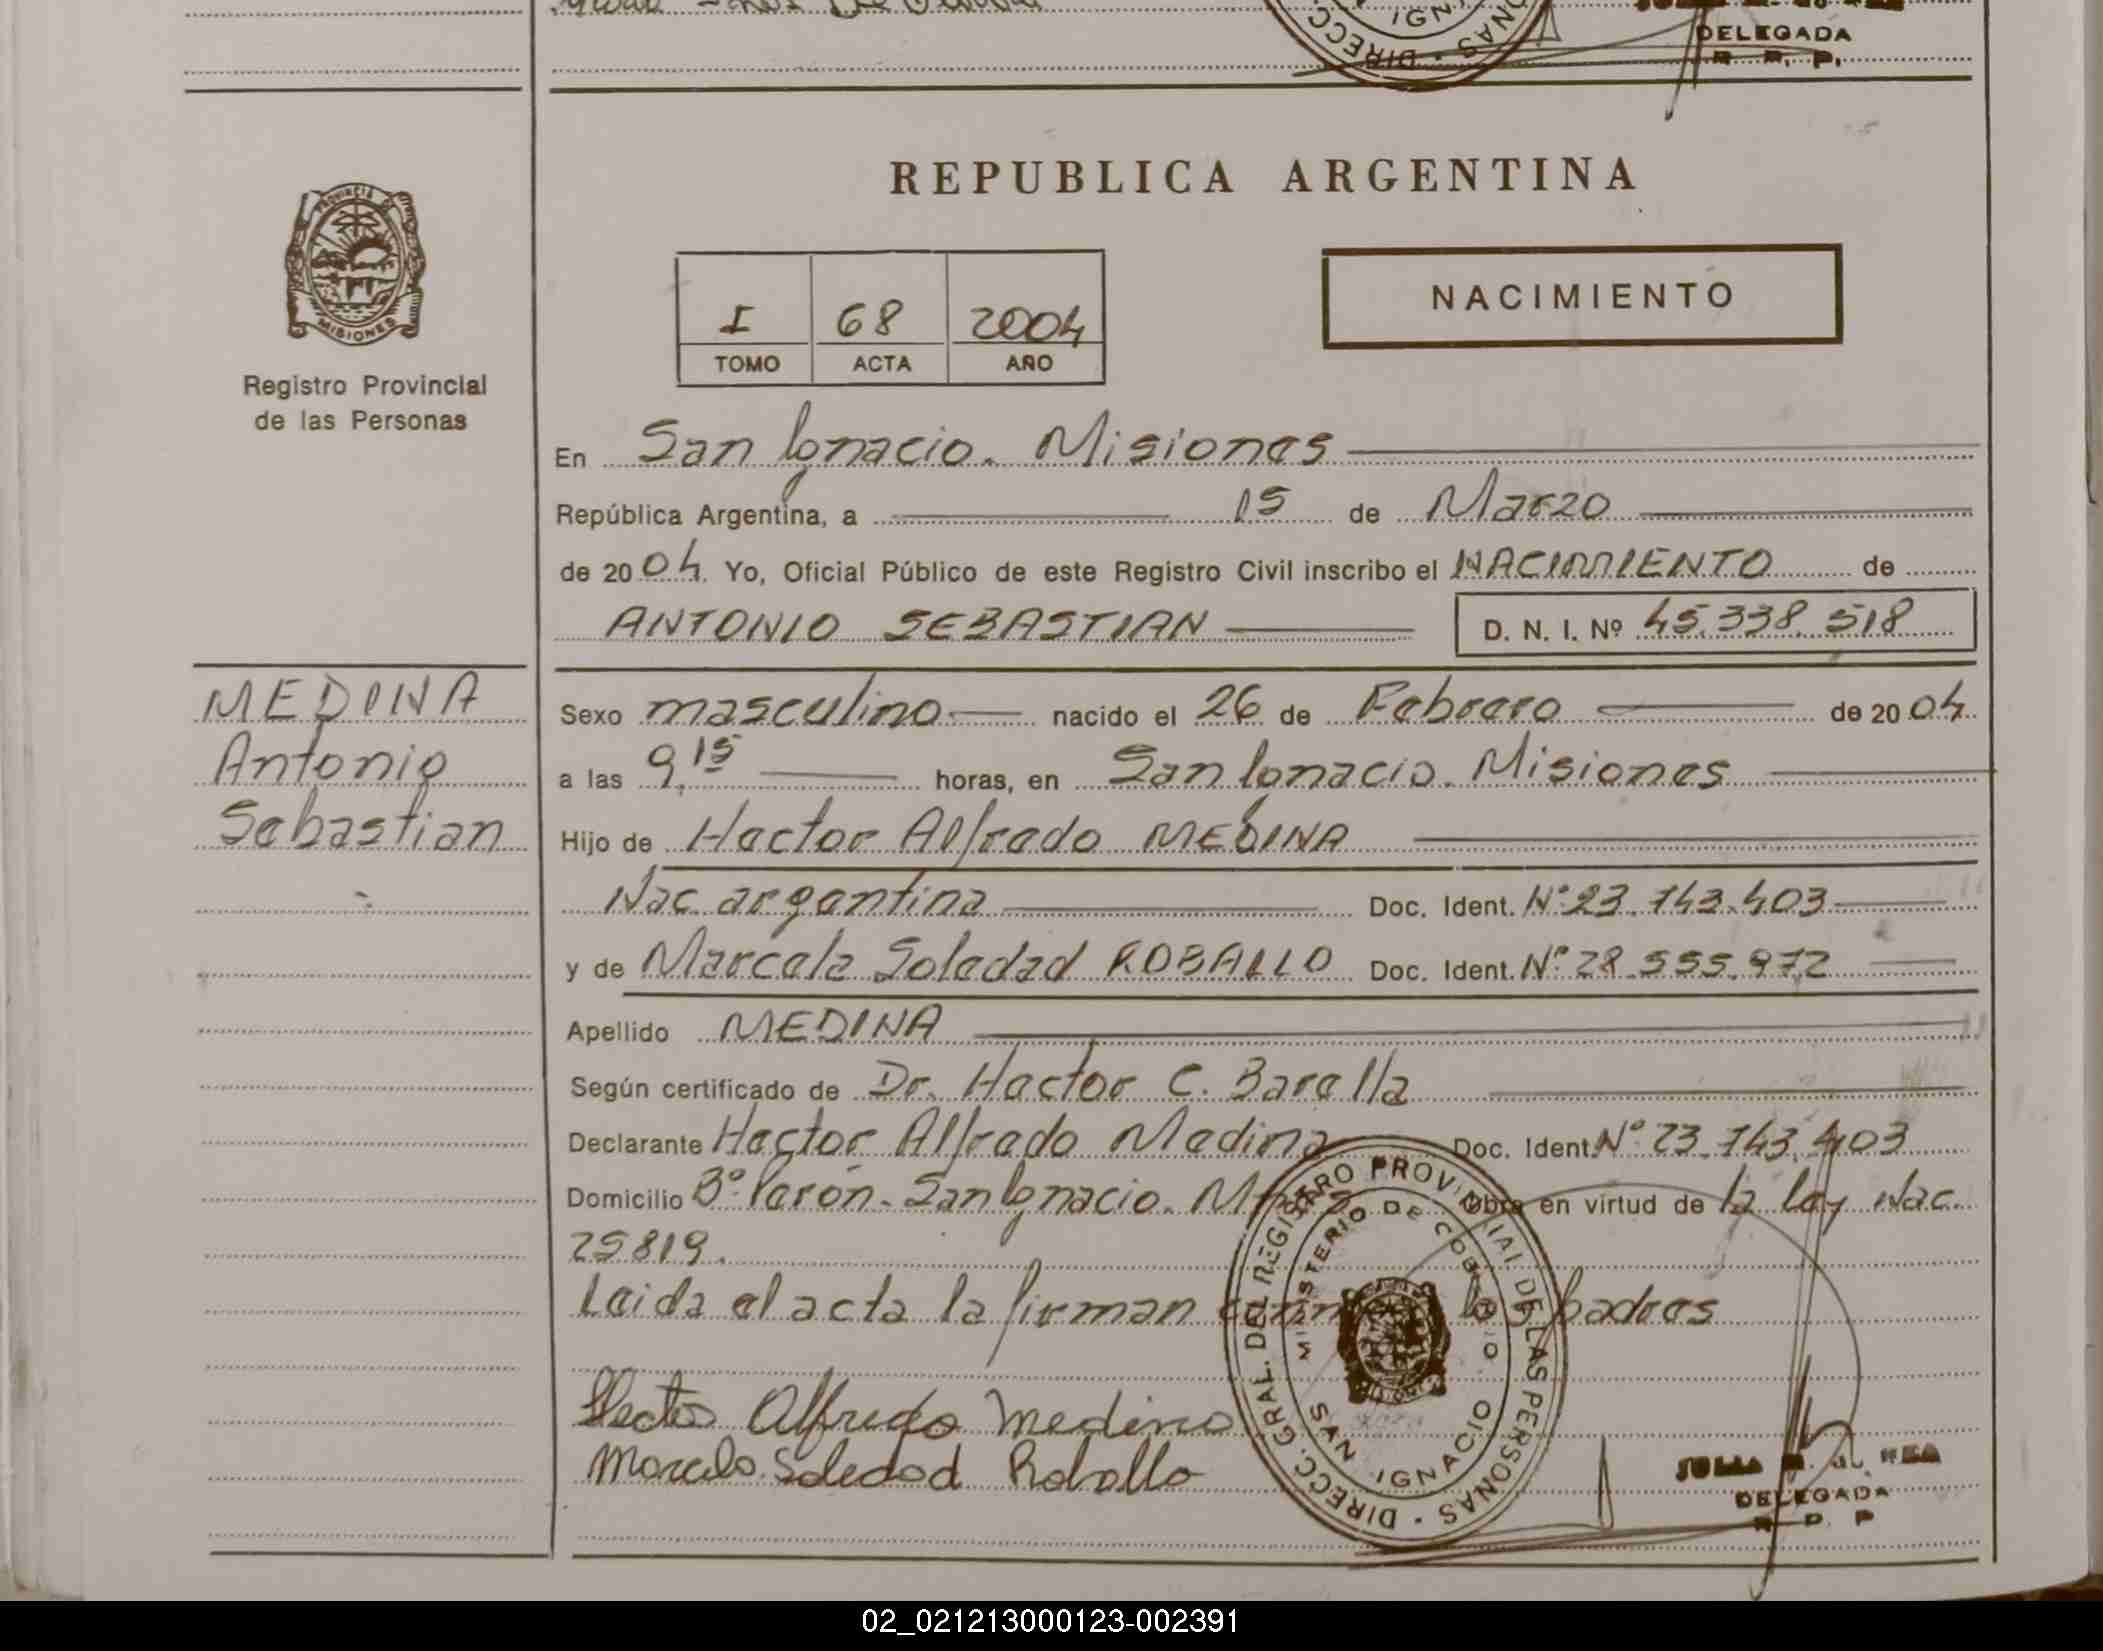 DIRECC.
IGN
NAS
DELEGADA
R. P. P.
REPUBLICA ARGENTINA
PROVINCIA DE
MISIONES
Registro Provincial
de las Personas
I 68 2004
TOMO ACTA AÑO
NACIMIENTO
En San Ignacio. Misiones
República Argentina, a 15 de Marzo
de 2004. Yo, Oficial Público de este Registro Civil inscribo el NACIMIENTO de
ANTONIO SEBASTIAN D. N. I. Nº 45.338.518
MEDINA
Antonio
Sebastian
Sexo masculino nacido el 26 de Febrero de 2004.
a las 9,15 horas, en San Ignacio. Misiones
Hijo de Hector Alfredo MEDINA
Nac argentina Doc. Ident. Nº 23.743.403
y de Marcela Soledad ROBALLO Doc. Ident. Nº 28.555.972
Apellido MEDINA
Según certificado de Dr. Hector C. Barella
Declarante Hector Alfredo Medina Doc. Ident. Nº 23.743.403
Domicilio Bº Perón. San Ignacio. Mnes Obra en virtud de la ley Nac.
25819.
Leida el acta la firman los padres
Hector Alfredo Medina
Marcela Soledad Roballo
DIRECC. GRAL. DEL REGISTRO PROVINCIAL DE LAS PERSONAS
MINISTERIO DE GOBIERNO
SAN IGNACIO
DELEGADA
R. P. P
02_021213000123-002391